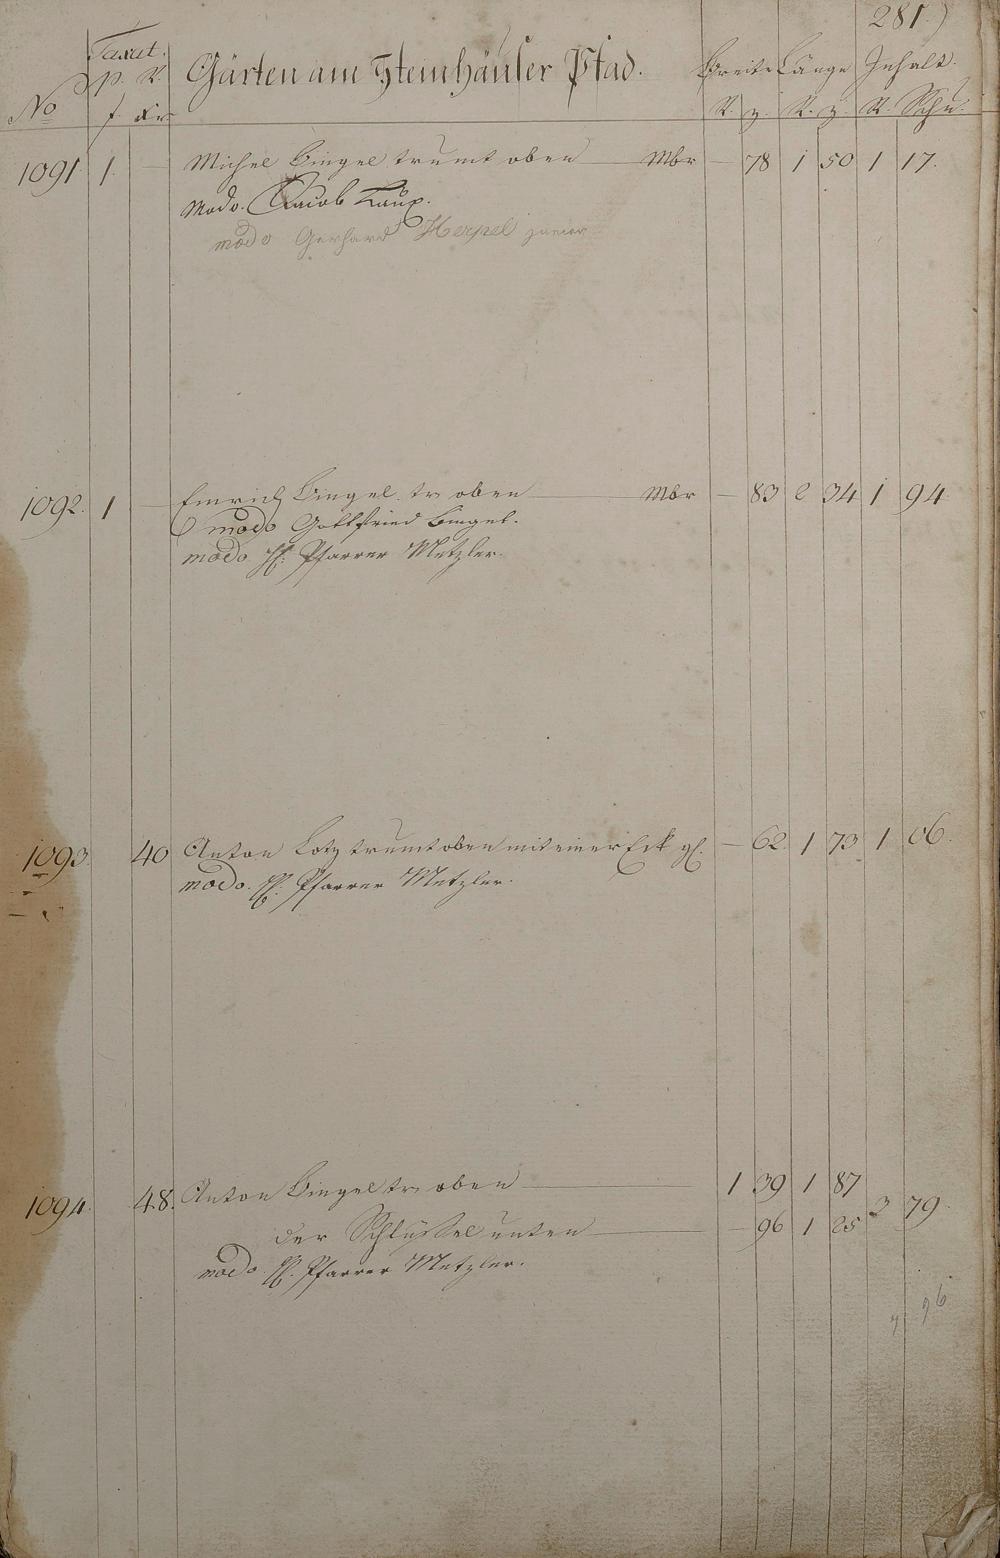 281.)
Taxat. Gärten am Steinhäuser Pfad. Breite Länge Inhalt.
No p. R. f Xr R. z. R. z. R Schu.
1091 1. — Michel Bingel trumt oben — Mbr — 78 1 50 1 17.
modo. Jacob Laux.
modo Gerhard Herpel junior
1092. 1 — Emrich Bingel. tr. oben — Mbr — 83 2 34 1 94
modo Gottfried Bingel.
modo H. Pfarrer Metzler.
1093. 40 Anton Lotz trumt oben mit einer Eck gl. — 62 1 73 1 06.
modo. H. Pfarrer Metzler.
1094. 48. Anton Bingel tr. oben — 1 39 1 87
der Schlüssel unten — — 96 1 25 3 79.
modo H. Pfarrer Metzler.
7 96